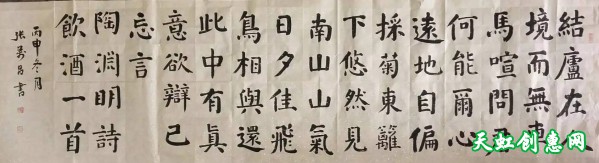 結廬在人
境而無車
馬喧問君
何能爾心
遠地自偏
採菊東籬
下悠然見
南山山氣
日夕佳飛
鳥相與還
此中有真
意欲辯已
忘言
陶淵明詩
飲酒一首
丙申冬月
書
天虹创惠网